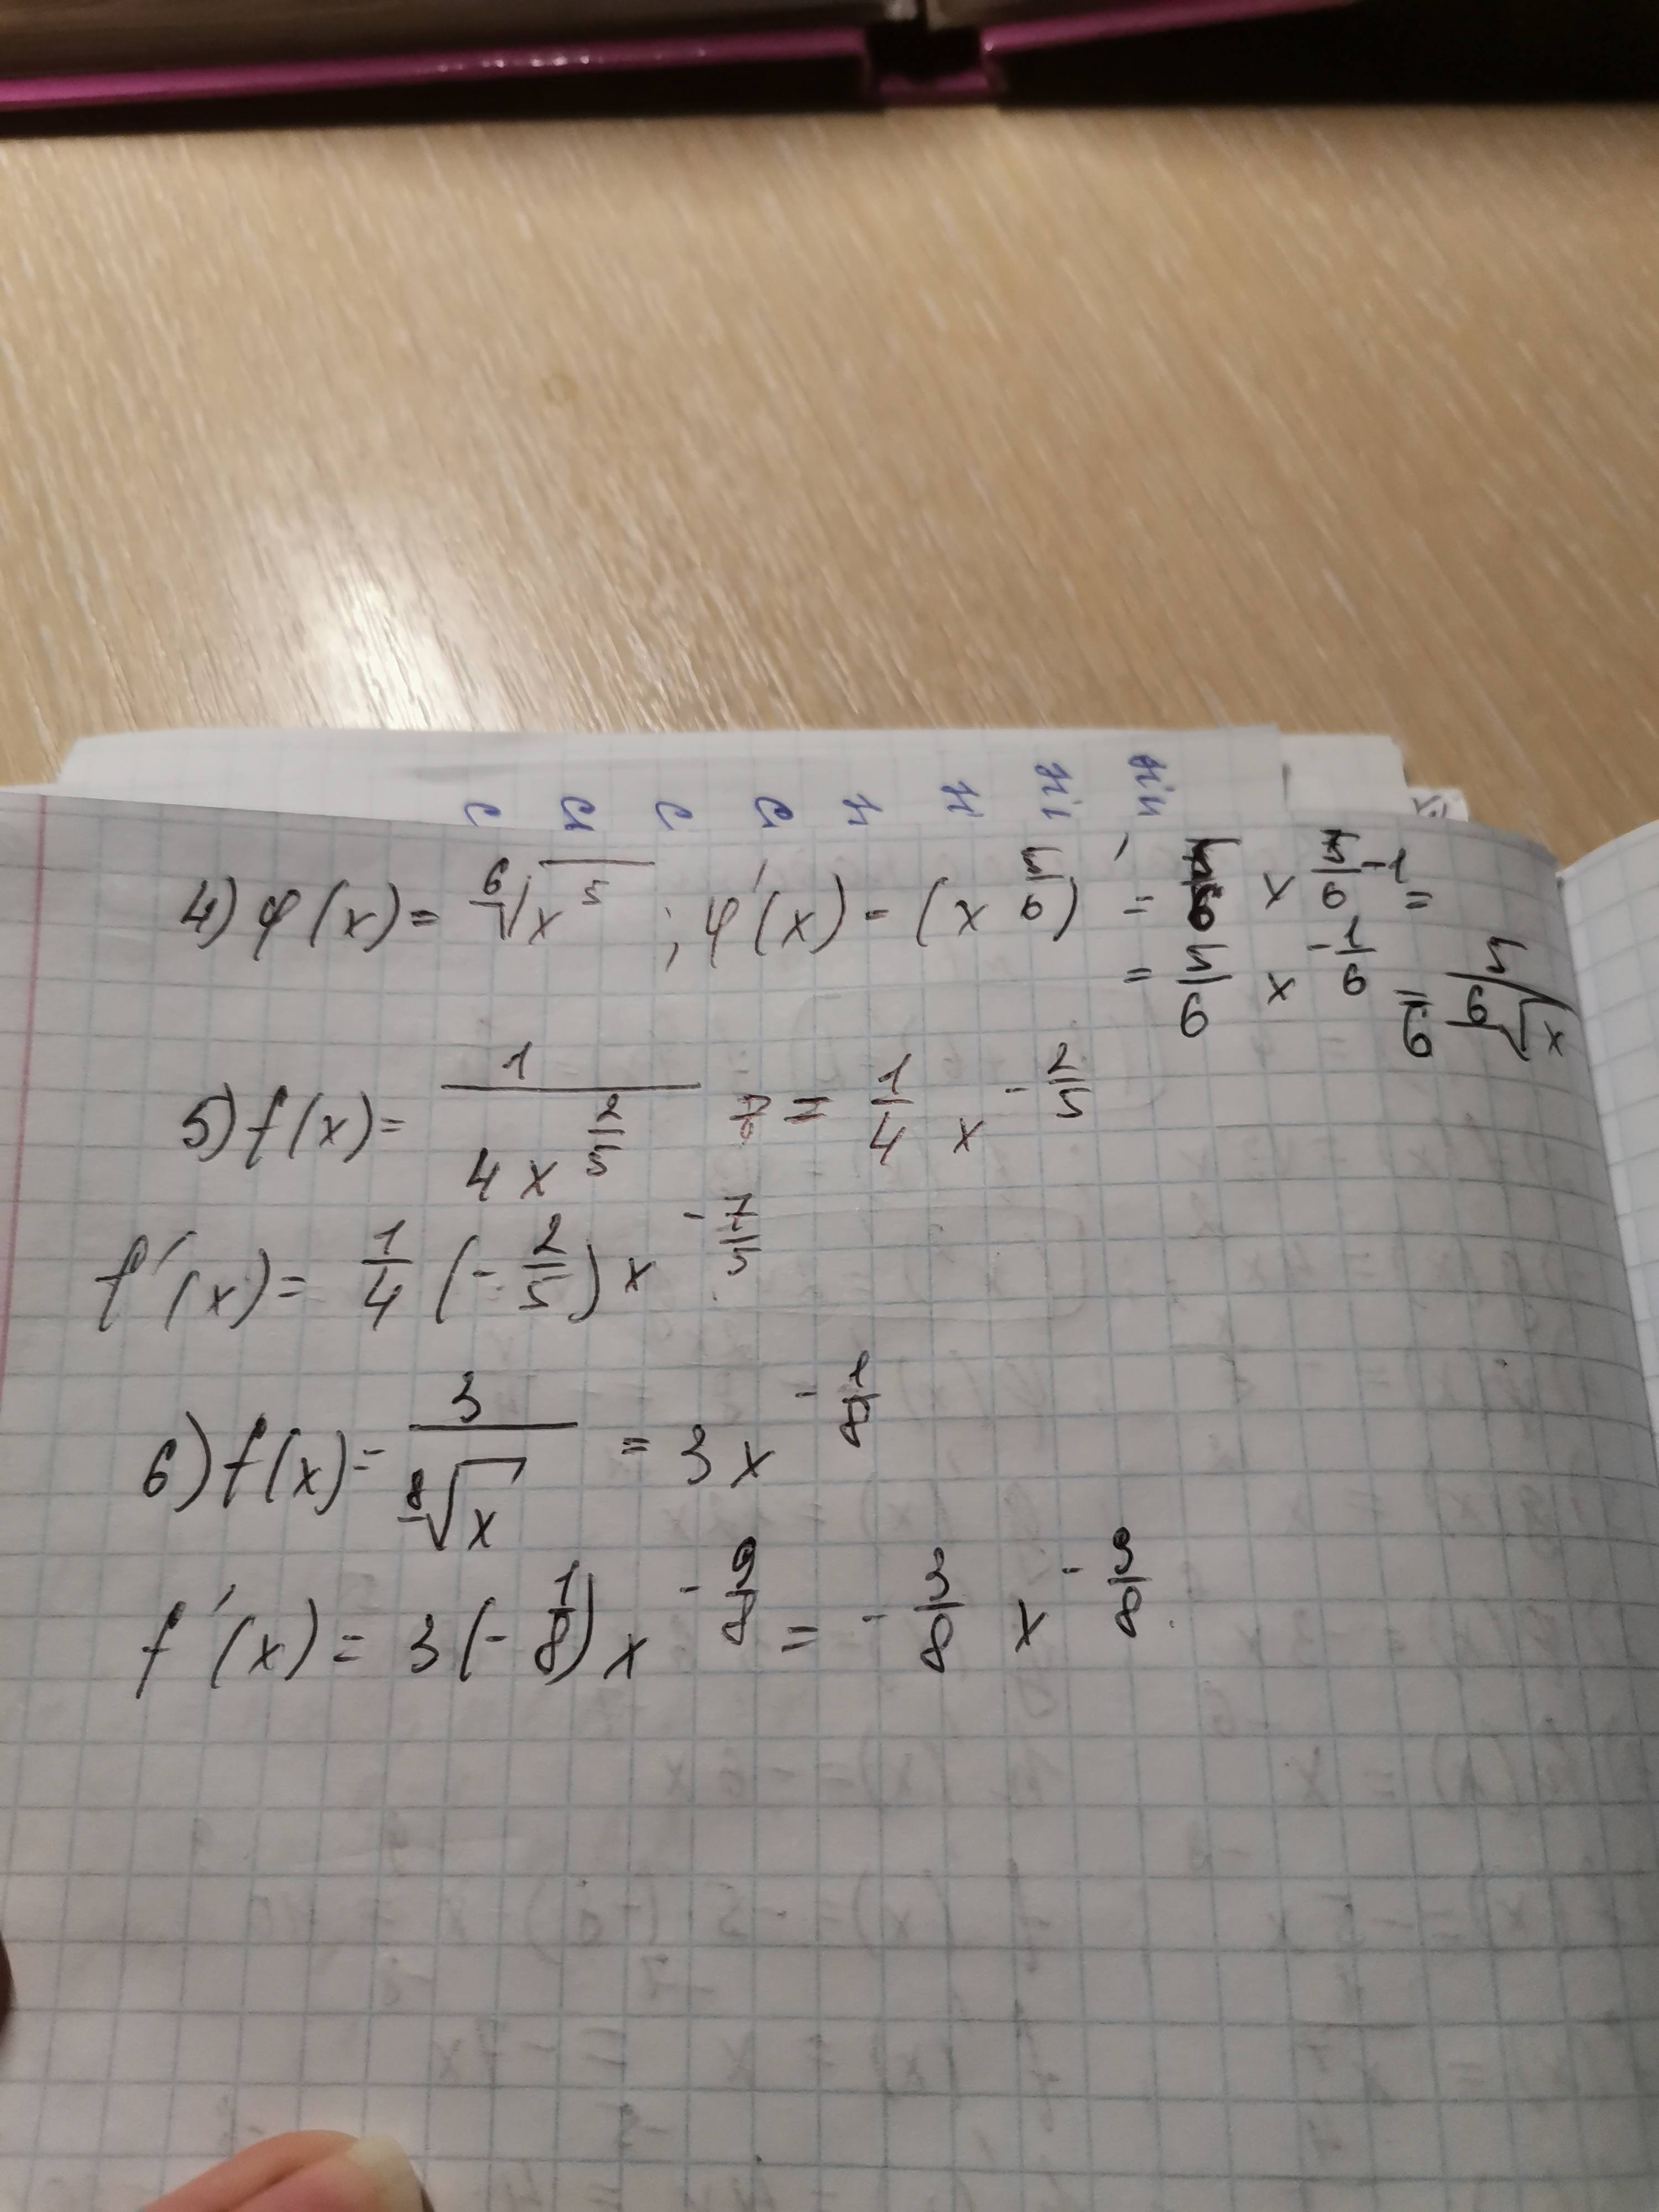 4) φ(x) = ⁶√x⁵ ; φ'(x) = (x^(5/6))' = 5/6 x^(5/6 - 1) =
= 5/6 x^(-1/6) = 5/(6 ⁶√x)
5) f(x) = 1/(4x^(2/5)) = 1/4 x^(-2/5)
f'(x) = 1/4 (-2/5) x^(-7/5)
6) f(x) = 3/⁸√x = 3x^(-1/8)
f'(x) = 3(-1/8) x^(-9/8) = -3/8 x^(-9/8).